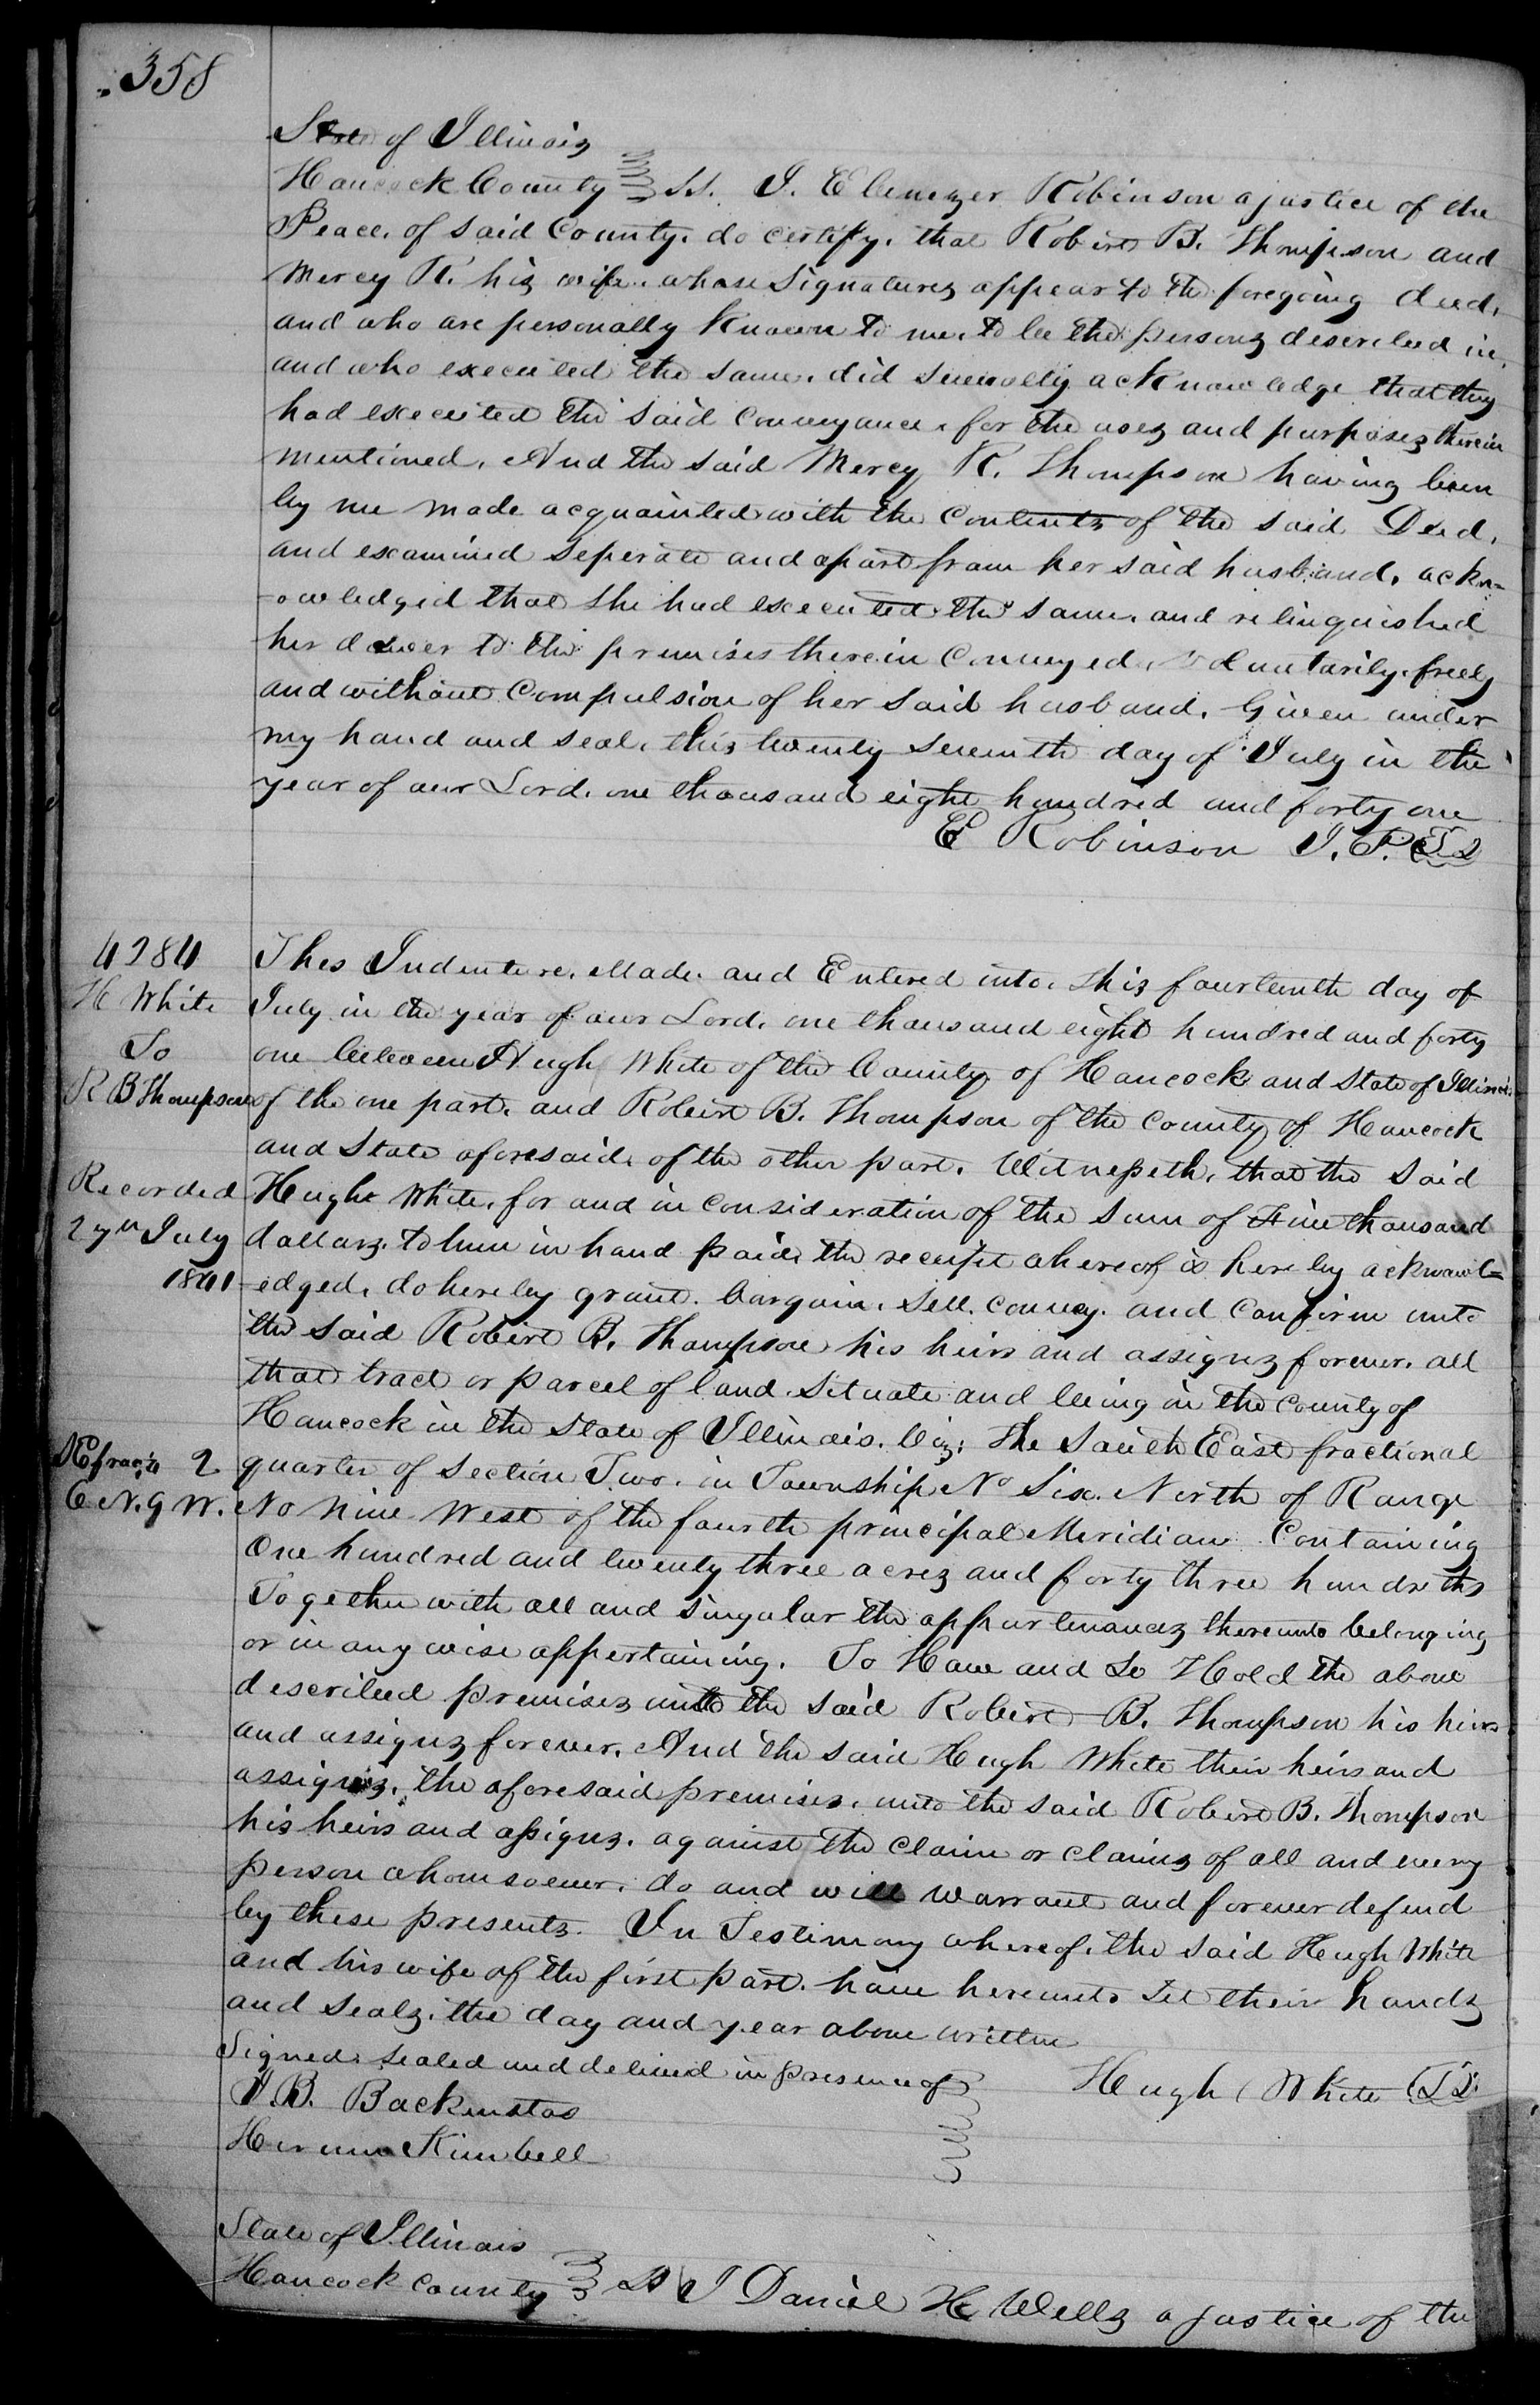 358
State of Illinois
Hancock County } ss. I. Ebenezer Robinson a justice of the
Peace. of said County. do certify. that Robert B. Thompson and
Mercy R. his wife. whose signatures appear to the foregoing deed.
and who are personally known to me. to be the persons described in,
and who executed the same. did severally acknowledge that they
had executed the said conveyance. for the uses and purposes therein
mentioned. And the said Mercy R. Thompson having been
by me made acquainted with the contents of the said Deed.
and examined seperate and apart from her said husband. ackn=
-owledged that she had executed the same. and relinquished
her dower to the premises therein conveyed. voluntarily. freely
and without compulsion of her said husband. Given under
my hand and seal. this twenty seventh day of July in the
year of our Lord. one thousand eight hundred and forty one
E Robinson J. P. LS
4284
H White
To
R B Thompson
Recorded
27th July
1841
SE frac'n 2
6 N. 9 W.
This Indenture. Made. and Entered into. this fourteenth day of
July in the year of our Lord. one thousand eight hundred and forty
one between Hugh White of the County of Hancock and State of Illinois
of the one part. and Robert B. Thompson of the County of Hancock
and State aforesaid. of the other part. Witnesseth. that the said
Hugh White. for and in consideration of the sum of Five thousand
dollars. to him in hand paid. the receipt whereof is hereby acknowl=
-edged. do hereby grant. bargain. sell. convey. and confirm unto
the said Robert B. Thompson his heirs and assigns forever. all
that tract or parcel of land. situate and being in the county of
Hancock in the State of Illinois. Viz: The South East fractional
quarter of section Two. in Township No Six. North of Range
No Nine West of the fourth principal Meridian Containing
One hundred and twenty three acres and forty three hundreths
Together with all and singular the appurtenances thereunto belonging
or in any wise appertaining. To Have and to Hold the above
described premises unto the said Robert B. Thompson his heirs
and assigns forever. And the said Hugh White their heirs and
assigns. the aforesaid premises. unto the said Robert B. Thompson
his heirs and assigns. against the claim or claims of all and every
person whomsoever. do and will warrant and forever defend
by these presents. In Testimony whereof. the said Hugh White
and his wife of the first part. have hereunto set their hands
and seals. the day and year above written
Signed. sealed and deliverd in presence of } Hugh White LS
J. B. Backenstos
Hiram Kimball
State of Illinois
Hancock County } SS I Daniel H Wells a justice of the